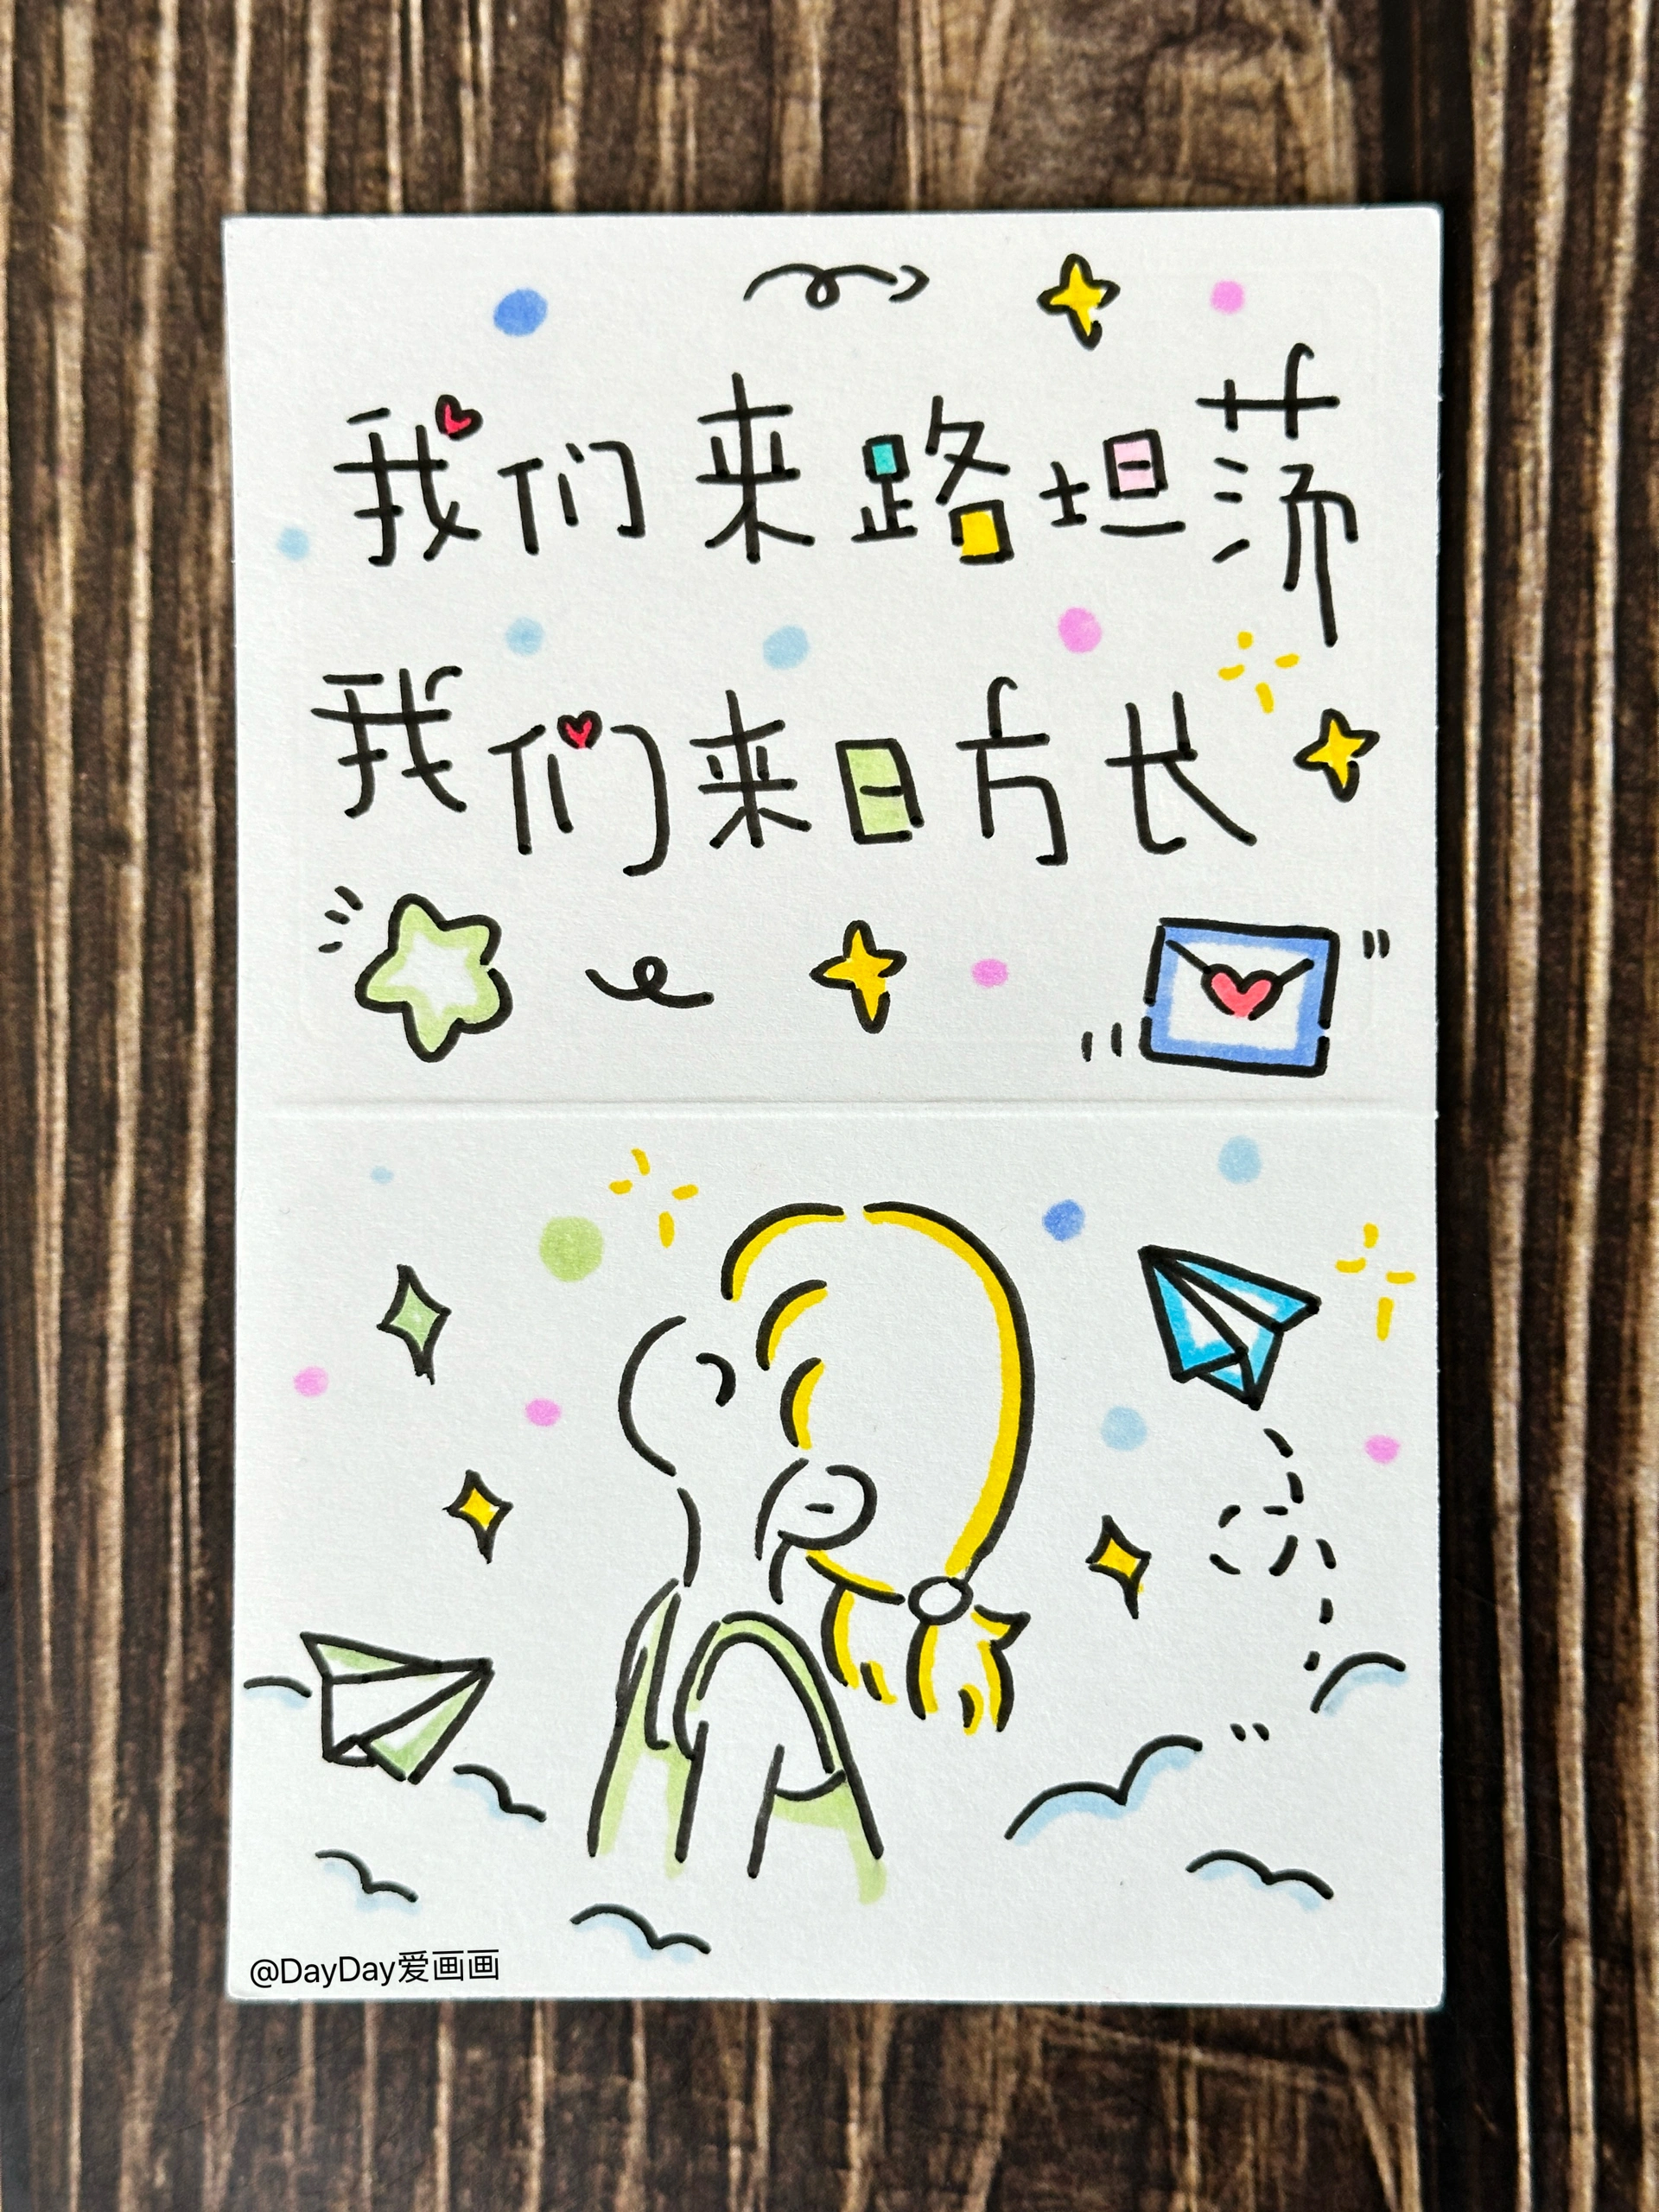 我们来路坦荡
我们来日方长
@DayDay爱画画